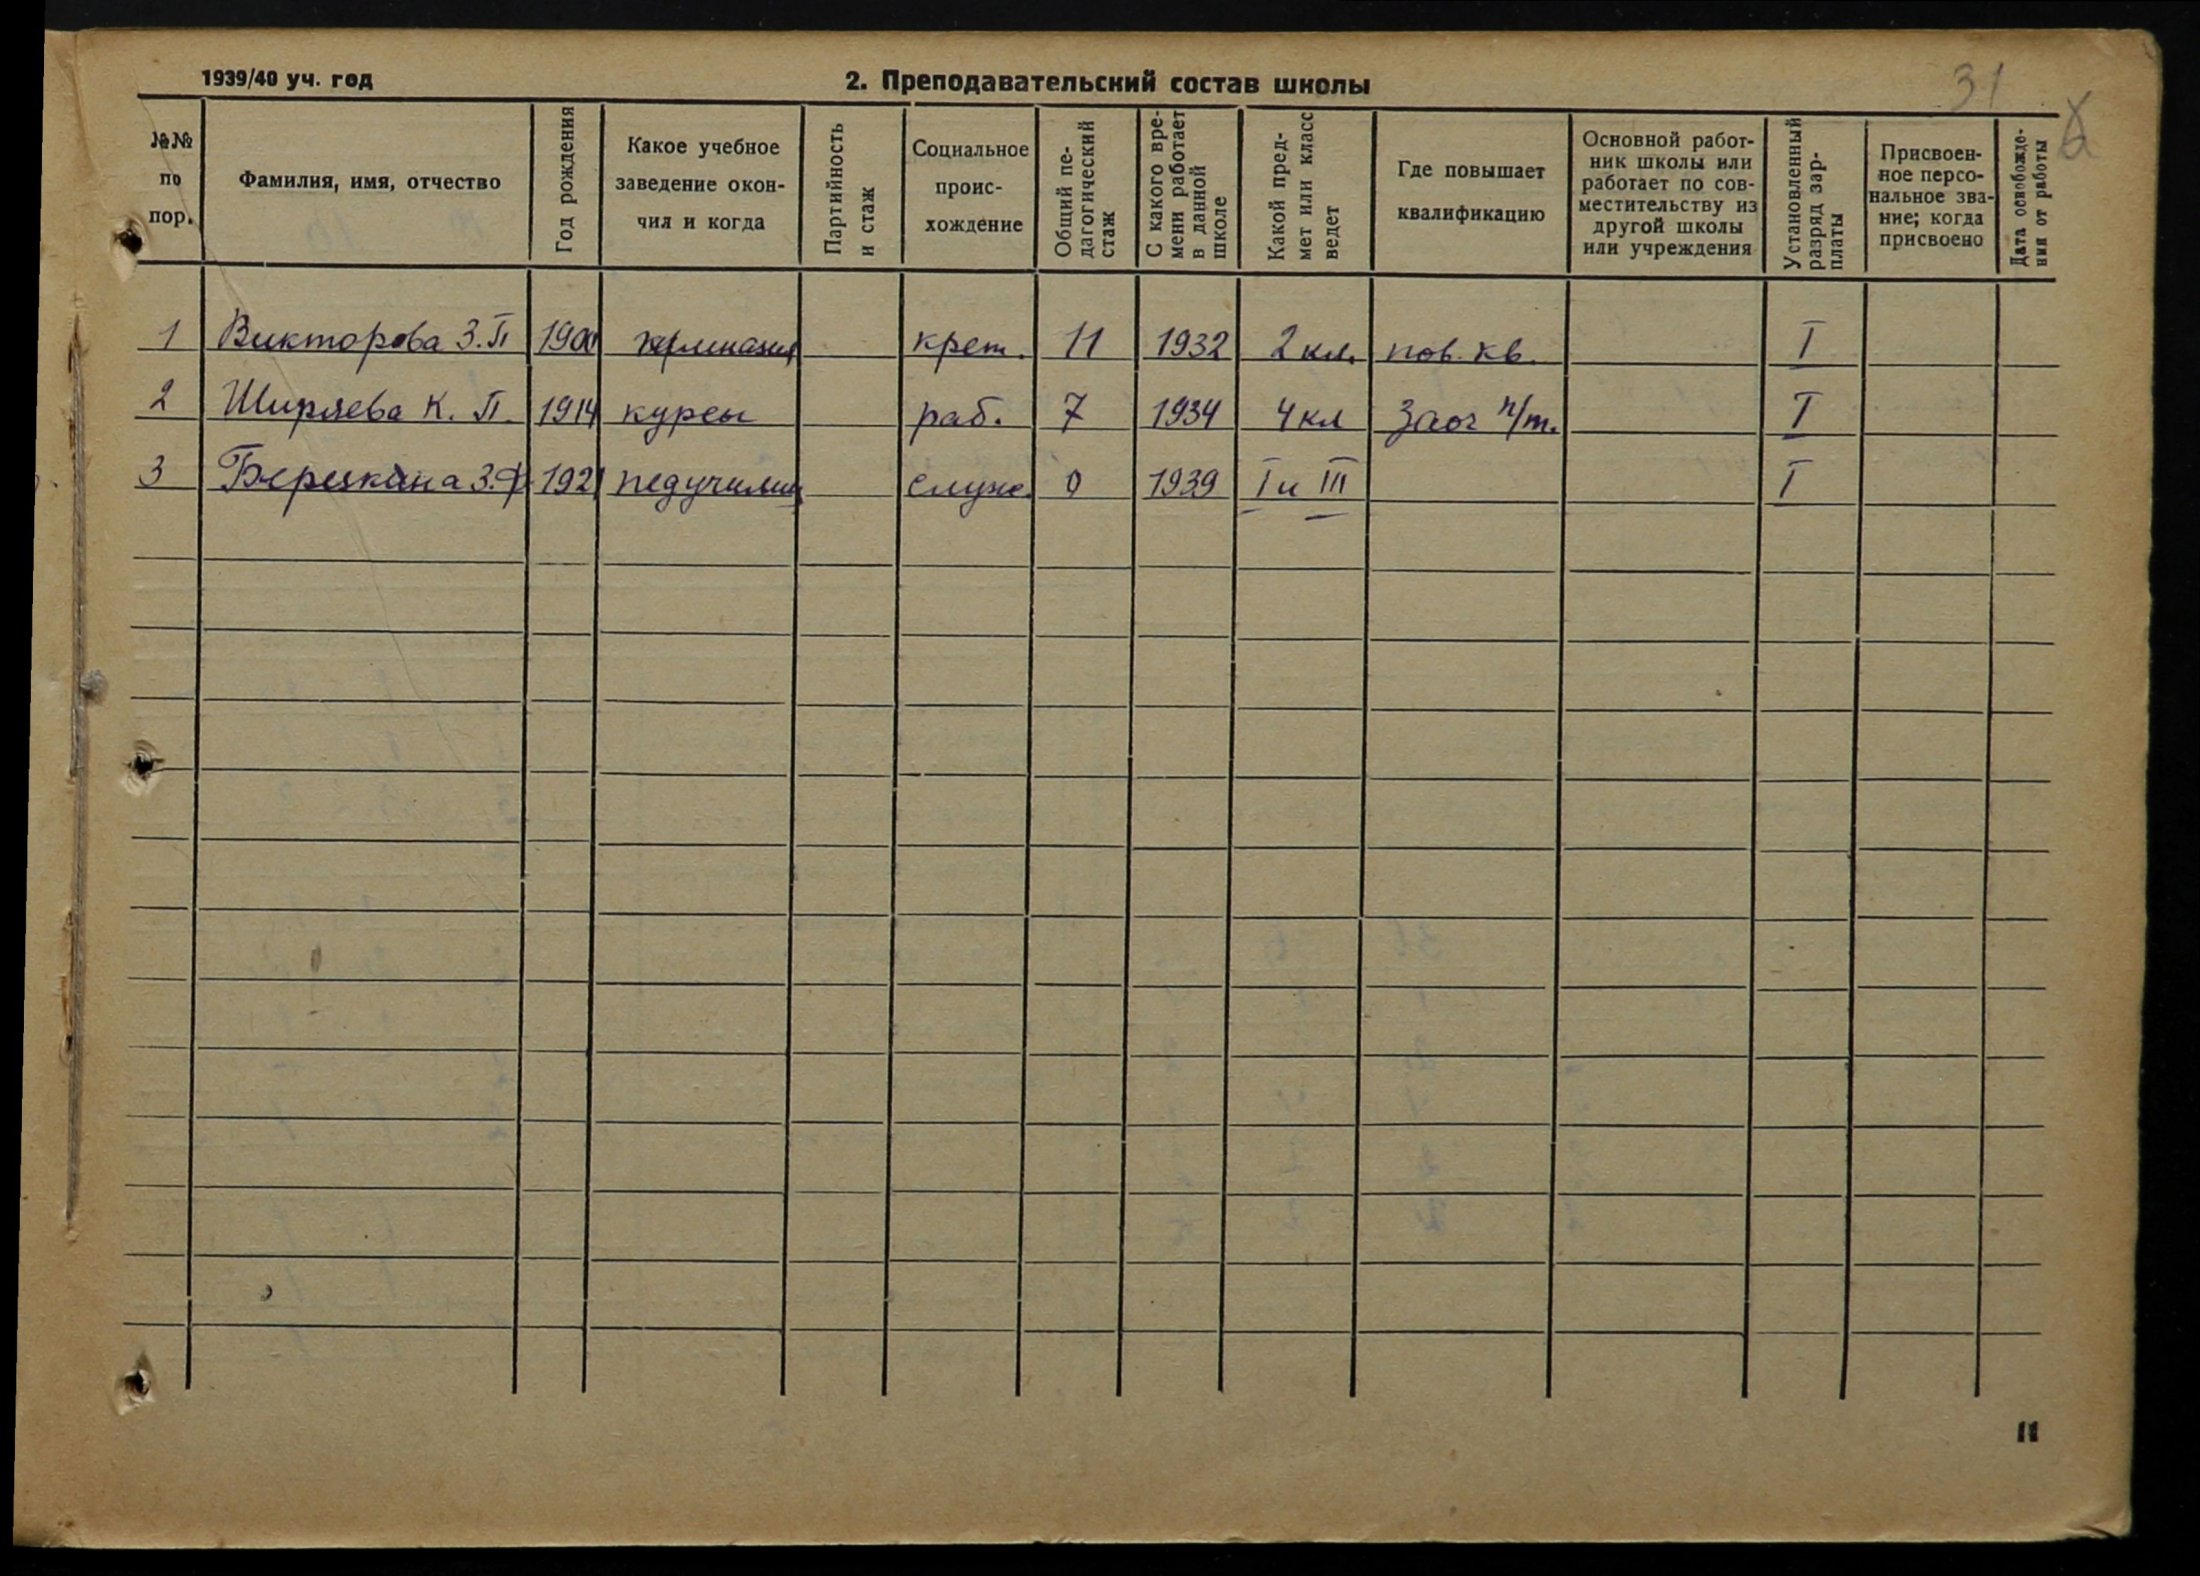 1939/40 уч. год
2. Преподавательский состав школы
31
№№ по пор.
Фамилия, имя, отчество
Год рождения
Какое учебное заведение окончил и когда
Партийность и стаж
Социальное происхождение
Общий педагогический стаж
С какого времени работает в данной школе
Какой предмет или класс ведет
Где повышает квалификацию
Основной работник школы или работает по совместительству из другой школы или учреждения
Установленный разряд зарплаты
Присвоенное персональное звание; когда присвоено
Дата освобождения от работы
1 Викторова З.П 1900 гимназия крест. 11 1932 2 кл. пов. кв. I
2 Ширяева К. П. 1914 курсы раб. 7 1934 4 кл Заоч п/т. I
3 З.Ф 1921 педучилищ служ. 0 1939 I и III I
11